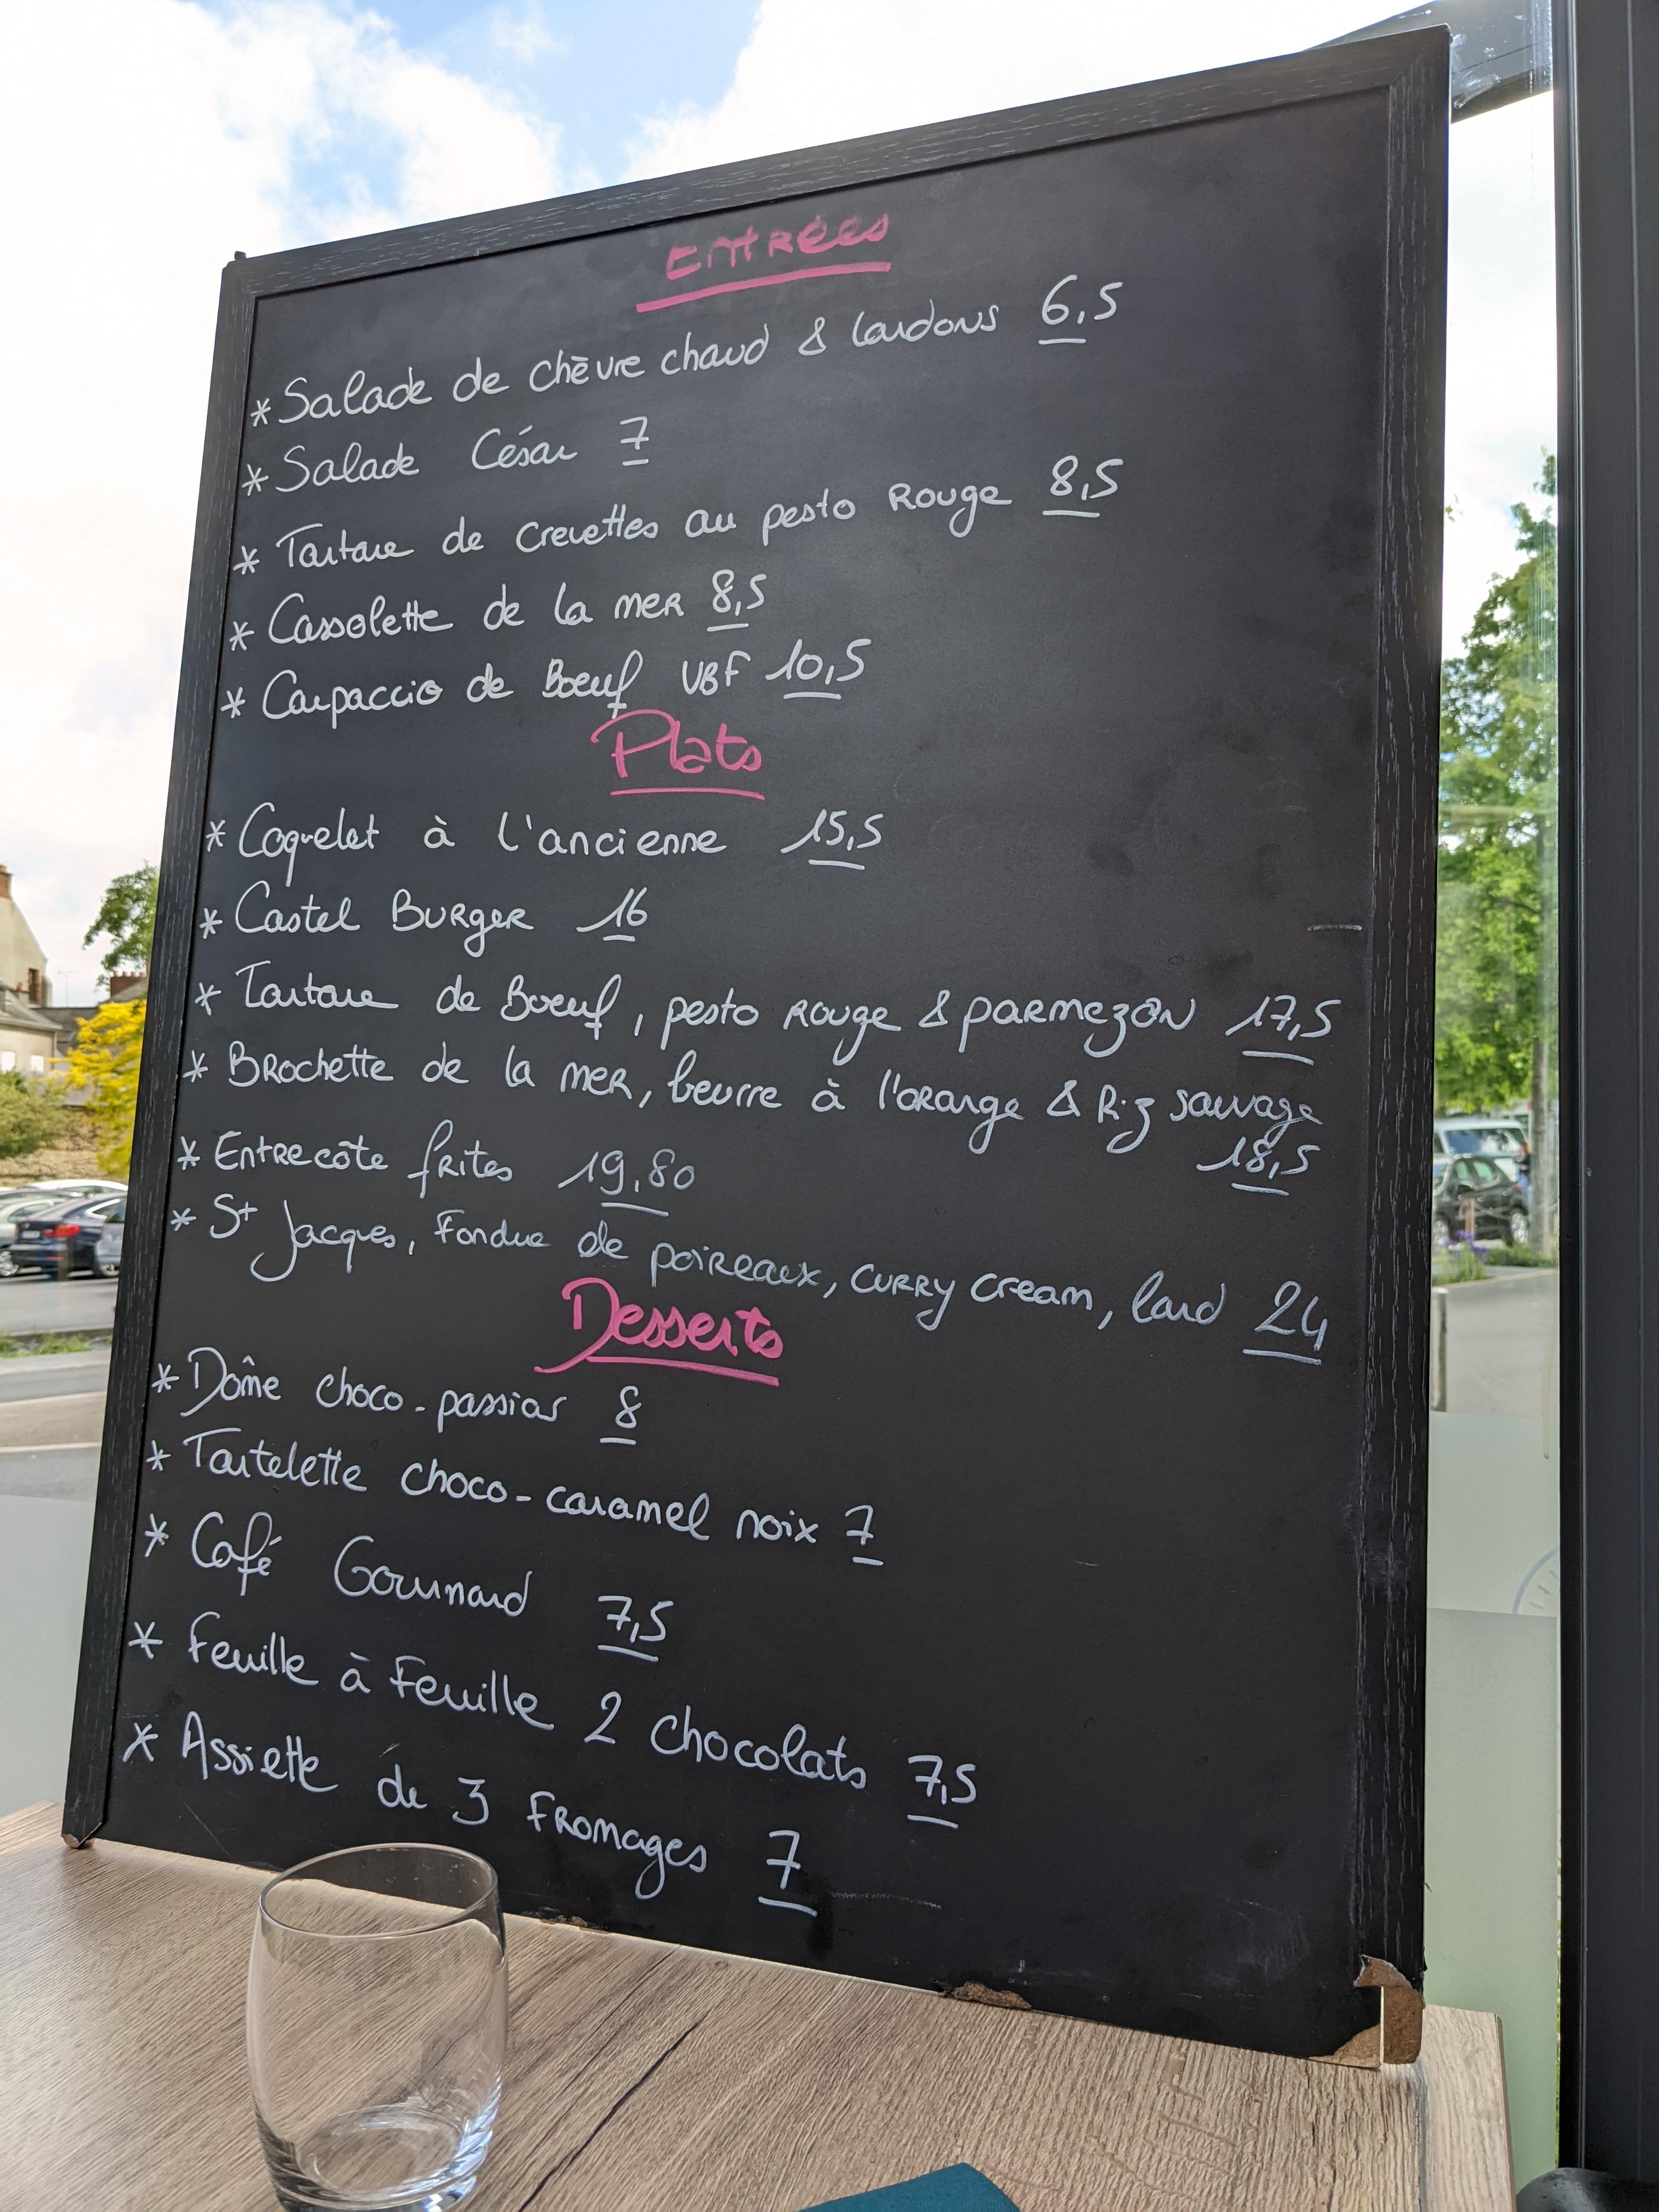 Entrées
* Salade de chèvre chaud & lardons 6,5
* Salade César 7
* Tartare de crevettes au pesto Rouge 8,5
* Cassolette de la mer 8,5
* Carpaccio de Boeuf VBF 10,5
Plats
* Coquelet à l'ancienne 15,5
* Castel Burger 16
* Tartare de Boeuf, pesto Rouge & parmezan 17,5
* Brochette de la mer, beurre à l'orange & Riz sauvage
18,5
* Entrecôte frites 19,80
* St Jacques, Fondue de poireaux, curry cream, lard 24
Desserts
* Dôme choco-passion 8
* Tartelette choco-caramel noix 7
* Café Gourmand 7,5
* Feuille à Feuille 2 chocolats 7,5
* Assiette de 3 fromages 7